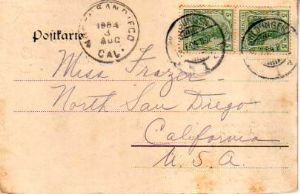 Postkarte
SAN DIEGO
1904
3
AUG
CAL.
5 5
Miss Frazer
North San Diego
California
U. S. A.